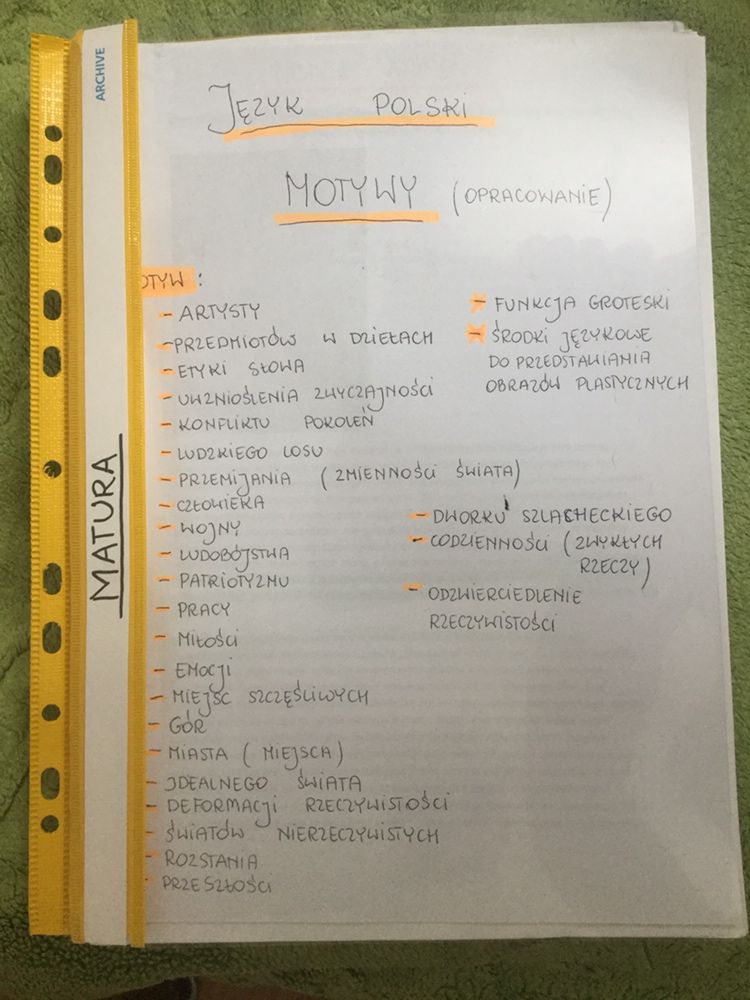 ARCHIVE
MATURA
JĘZYK POLSKI
MOTYWY (OPRACOWANIE)
OTYW :
- ARTYSTY
- PRZEDMIOTÓW W DZIEŁACH
- ETYKI SŁOWA
- UWZNIOŚLENIA ZWYCZAJNOŚCI
- KONFLIKTU POKOLEŃ
- LUDZKIEGO LOSU
- PRZEMIJANIA (ZMIENNOŚCI ŚWIATA)
- CZŁOWIEKA
- WOJNY
- LUDOBÓJSTWA
- PATRIOTYZMU
- PRACY
- MIŁOŚCI
- EMOCJI
- MIEJSC SZCZĘŚLIWYCH
- GÓR
- MIASTA (MIEJSCA)
- IDEALNEGO ŚWIATA
- DEFORMACJI RZECZYWISTOŚCI
- ŚWIATÓW NIERZECZYWISTYCH
- ROZSTANIA
- PRZESZŁOŚCI
- FUNKCJA GROTESKI
- ŚRODKI JĘZYKOWE
DO PRZEDSTAWIANIA
OBRAZÓW PLASTYCZNYCH
- DWORKU SZLACHECKIEGO
- CODZIENNOŚCI (ZWYKŁYCH
RZECZY)
- ODZWIERCIEDLENIE
RZECZYWISTOŚCI